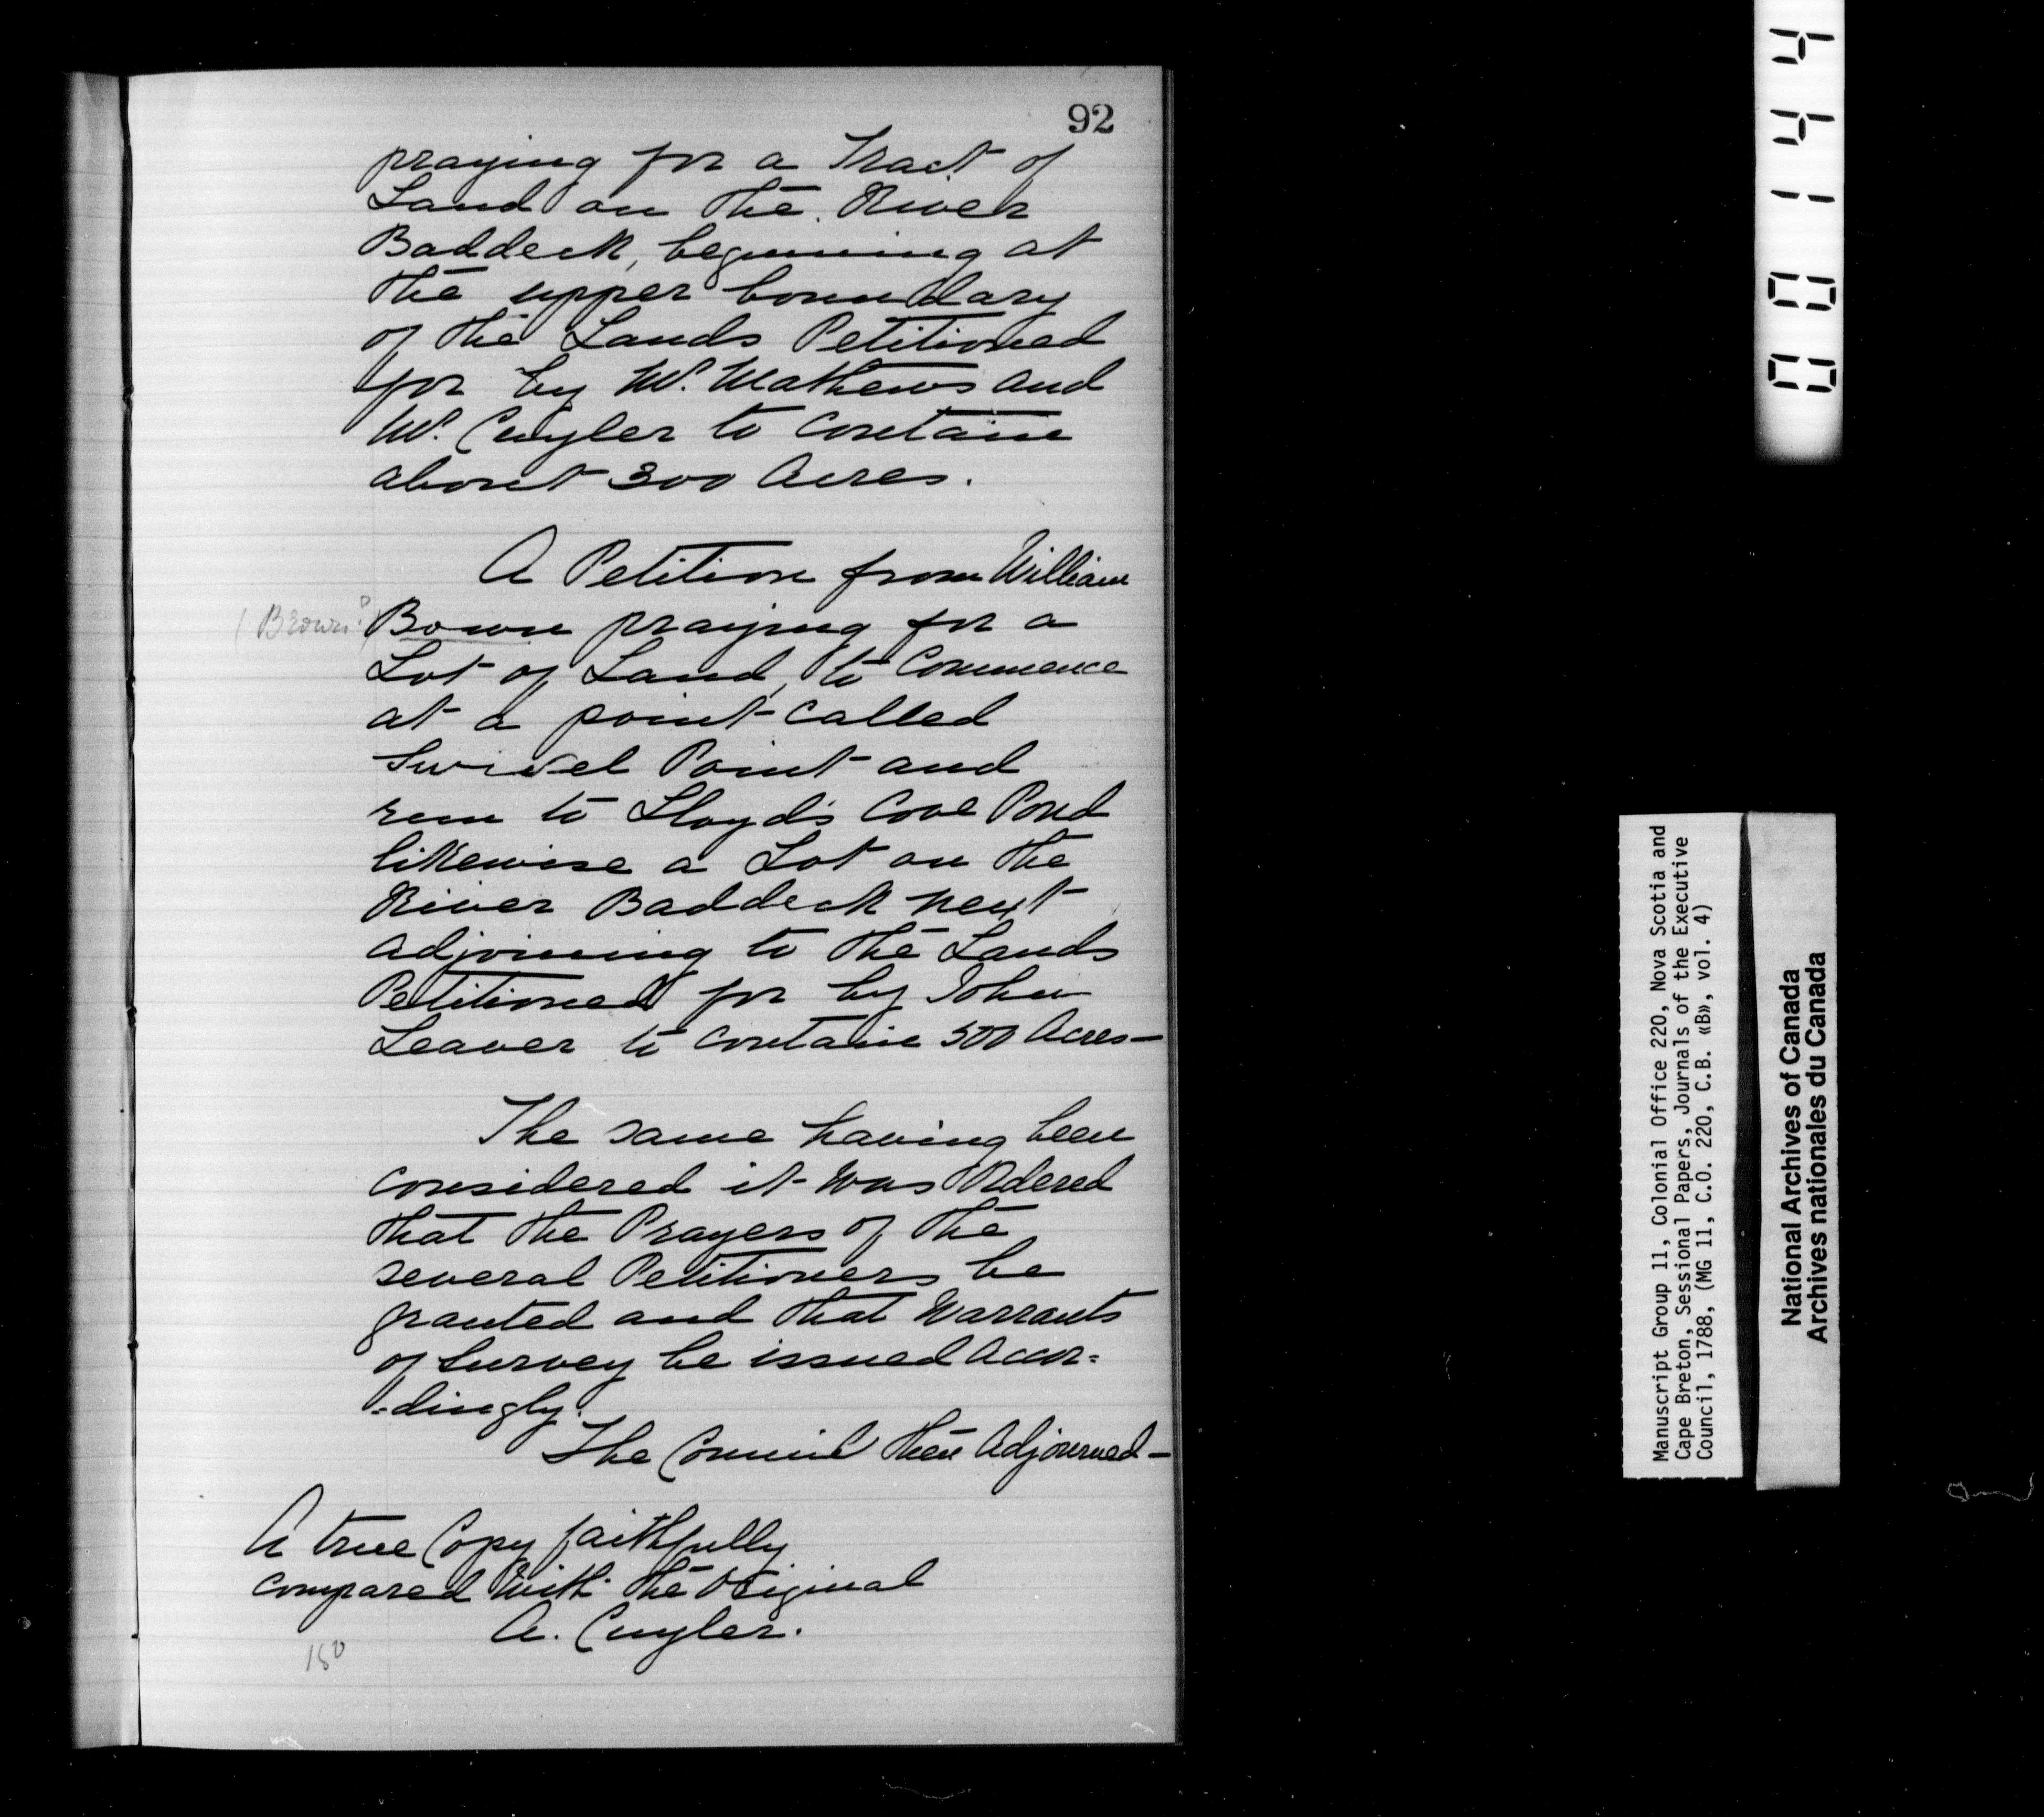 92
praying for a Tract of
Land on the River
Baddeck, beginning at
the upper boundary
of the Lands Petitioned
for by Mr. Mathews and
Mr. Cuyler to contain
about 300 Acres.
A Petition from William
(Brown?) Bown praying for a
Lot of Land, to Commence
at a point called
Swivel Point and
run to Lloyd's Cove Pond
likewise a Lot on the
River Baddeck next
adjoining to the Lands
Petitioned for by John
Leaver to contain 500 Acres—
The same having been
considered it was Ordered
that the Prayers of the
several Petitioners be
granted and that Warrants
of Survey be issued accor=
=dingly.
The Council then Adjourned—
A true Copy faithfully
compared with the Original
A. Cuyler.
001144
Manuscript Group 11, Colonial Office 220, Nova Scotia and
Cape Breton, Sessional Papers, Journals of the Executive
Council, 1788, (MG 11, C.O. 220, C.B. «B», vol. 4)
National Archives of Canada
Archives nationales du Canada